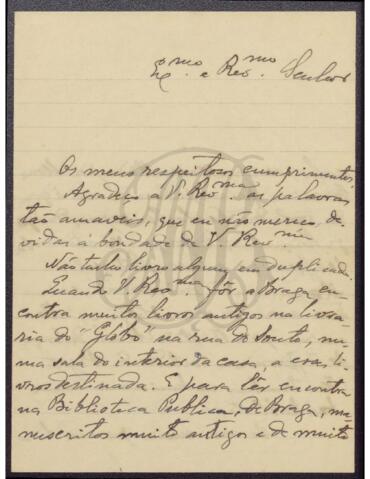 Ex.mo e Rev.mo Senhor
Os meus respeitosos cumprimentos.
Agradeço a V. Rev.ma as palavras
tão amaveis, que eu não mereço de-
vidas á bondade de V. Rev.ma
Não tenho livro algum em duplicado.
Quando V. Rev.ma fôr a Braga en-
contra muitos livros antigos na livra-
ria do "Globo" na rua do Souto, nu-
ma sala do interior da casa, a esses li-
vros destinada. E para lêr encontra
na Biblioteca Publica, de Braga, ma-
nuscritos muito antigos e de muito